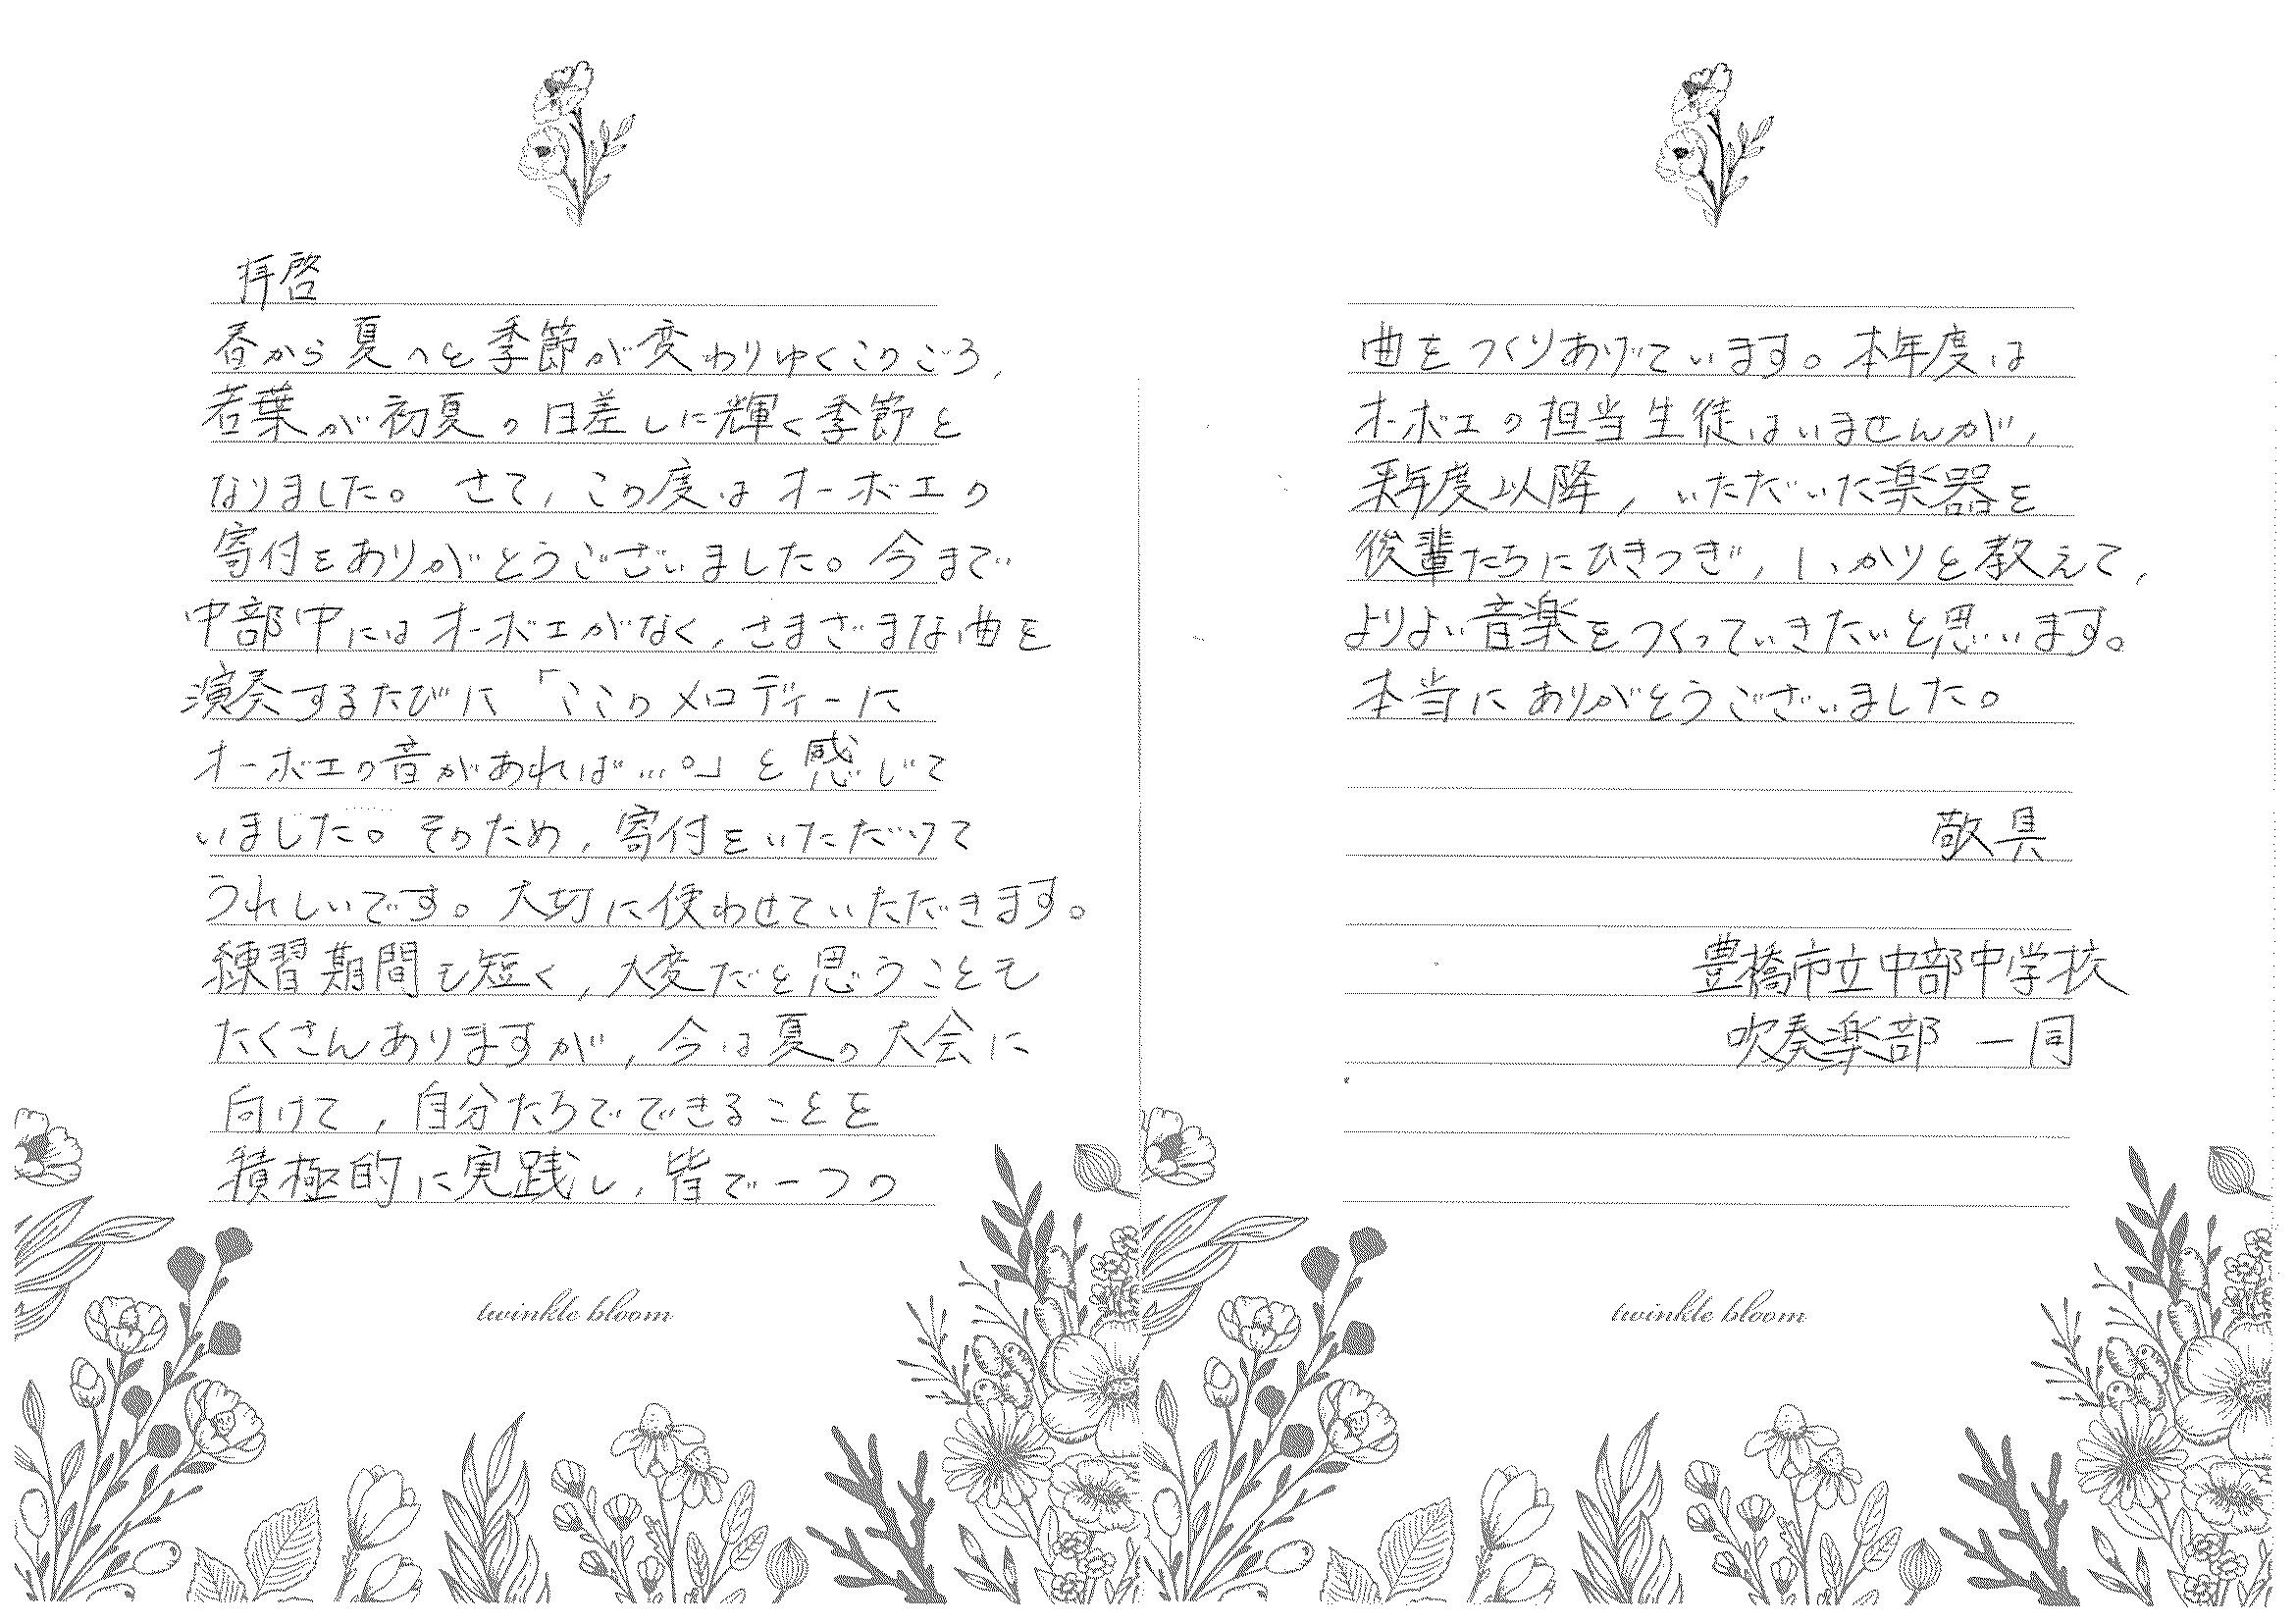 拝啓
春から夏へと季節が変わりゆくこのごろ,
若葉が初夏の日差しに輝く季節と
なりました。さて,この度はオーボエの
寄付をありがとうございました。今まで
中部中にはオーボエがなく,さまざまな曲を
演奏するたびに「ここのメロディーに
オーボエの音があれば…。」と感じて
いました。そのため,寄付をいただけて
うれしいです。大切に使わせていただきます。
練習期間も短く,大変だと思うことも
たくさんありますが,今は夏の大会に
向けて,自分たちでできることを
積極的に実践し,皆で一つの
twinkle bloom
曲をつくりあげています。本年度は
オーボエの担当生徒はいませんが,
来年度以降,いただいた楽器を
後輩たちにひきつぎ,しっかりと教えて,
よりよい音楽をつくっていきたいと思います。
本当にありがとうございました。
敬具
豊橋市立中部中学校
吹奏楽部 一同
twinkle bloom